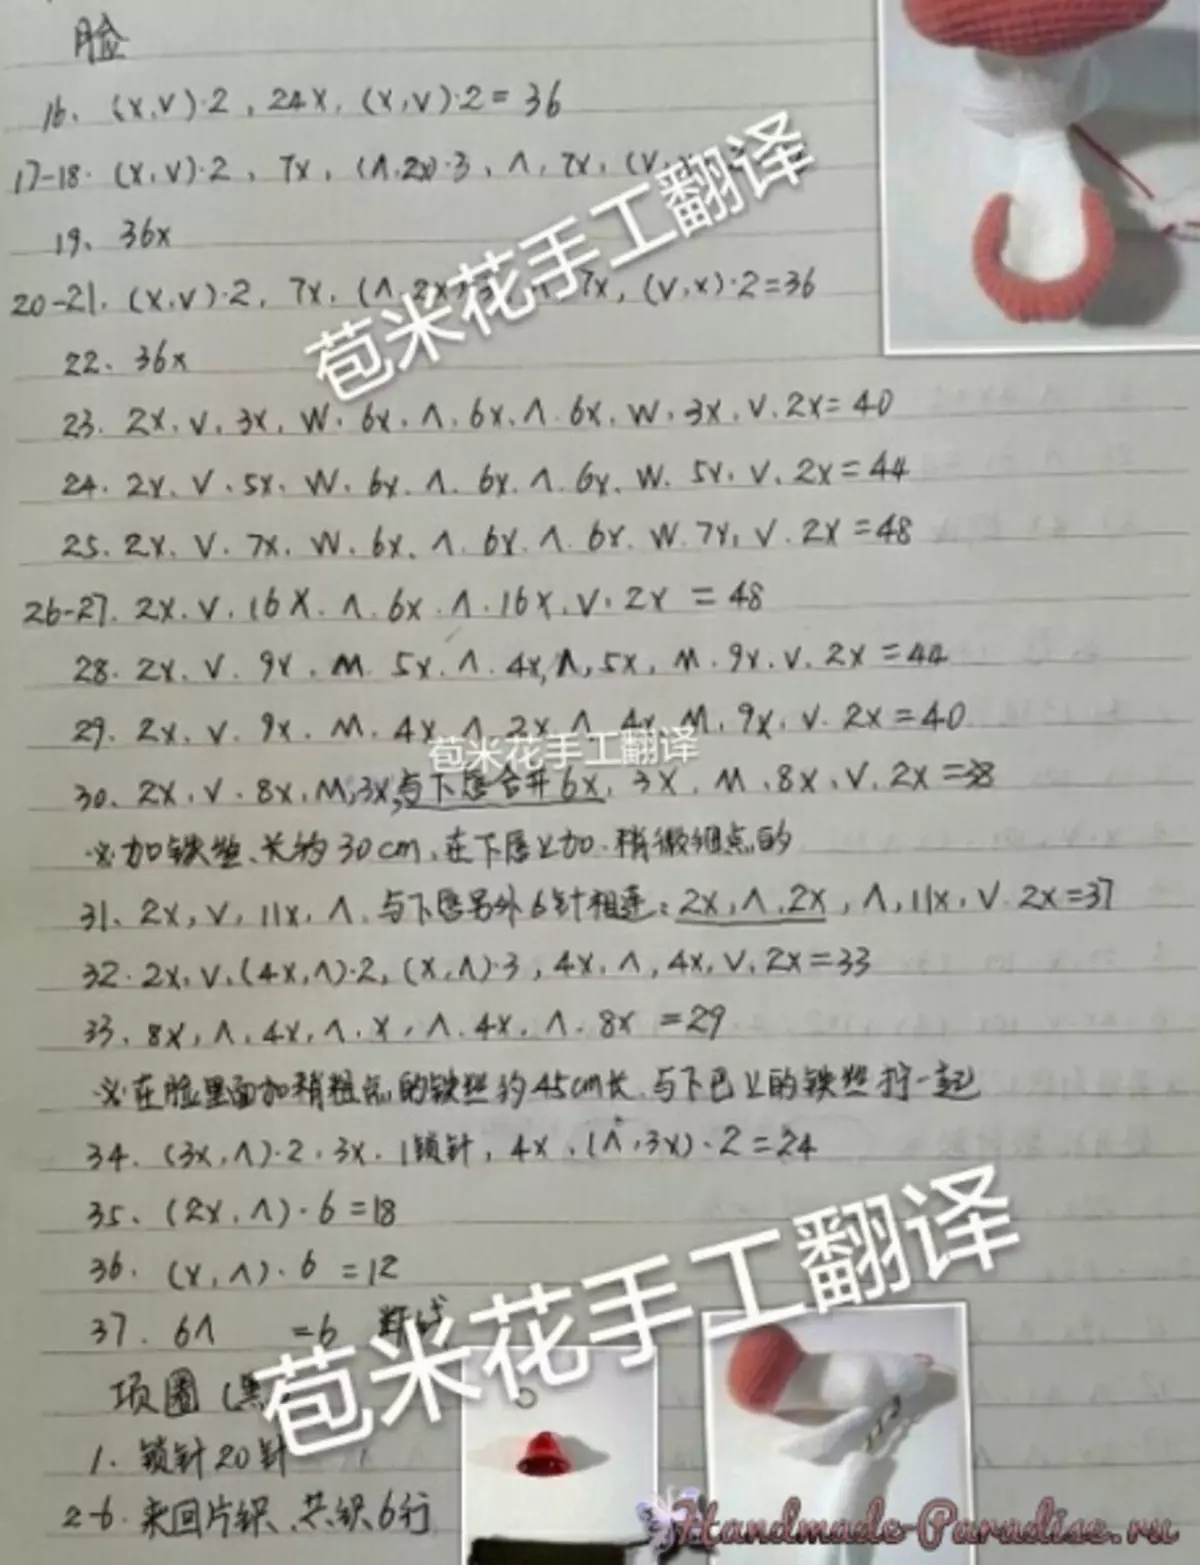 脸
16. (X, V)·2, 24X, (X, V)·2 = 36
17-18. (X, V)·2, 7X, (Λ, 2X)·3, Λ, 7X, (V,
19. 36X
20-21. (X, V)·2, 7X, (Λ, 2X)·3, 7X, (V, X)·2 = 36
22. 36X
23. 2X, V, 3X, W, 6X, Λ, 6X, Λ, 6X, W, 3X, V, 2X = 40
24. 2X, V, 5X, W, 6X, Λ, 6X, Λ, 6X, W, 5X, V, 2X = 44
25. 2X, V, 7X, W, 6X, Λ, 6X, Λ, 6X, W, 7X, V, 2X = 48
26-27. 2X, V, 16X, Λ, 6X, Λ, 16X, V, 2X = 48
28. 2X, V, 9X, M, 5X, Λ, 4X, Λ, 5X, M, 9X, V, 2X = 44
29. 2X, V, 9X, M, 4X, Λ, 2X, Λ, 4X, M, 9X, V, 2X = 40
30. 2X, V, 8X, M, 3X, 与下唇合并6X, 3X, M, 8X, V, 2X = 38
※加铁丝、长约30cm,在下唇上加、稍微细点的
31. 2X, V, 11X, Λ, 与下唇另外6针相连: 2X, Λ, 2X, Λ, 11X, V, 2X = 37
32. 2X, V, (4X, Λ)·2, (X, Λ)·3, 4X, Λ, 4X, V, 2X = 33
33. 8X, Λ, 4X, Λ, X, Λ, 4X, Λ, 8X = 29
※在脸里面加稍粗点的铁丝约45cm长,与下巴上的铁丝拧一起
34. (3X, Λ)·2, 3X, 1锁针, 4X, (Λ, 3X)·2 = 24
35. (2X, Λ)·6 = 18
36. (X, Λ)·6 = 12
37. 6Λ = 6 断线
项圈(黑
1. 锁针20针
2-6. 来回片织、共织6行
苞米花手工翻译
苞米花手工翻译
苞米花手工翻译
Handmade-Paradise.ru